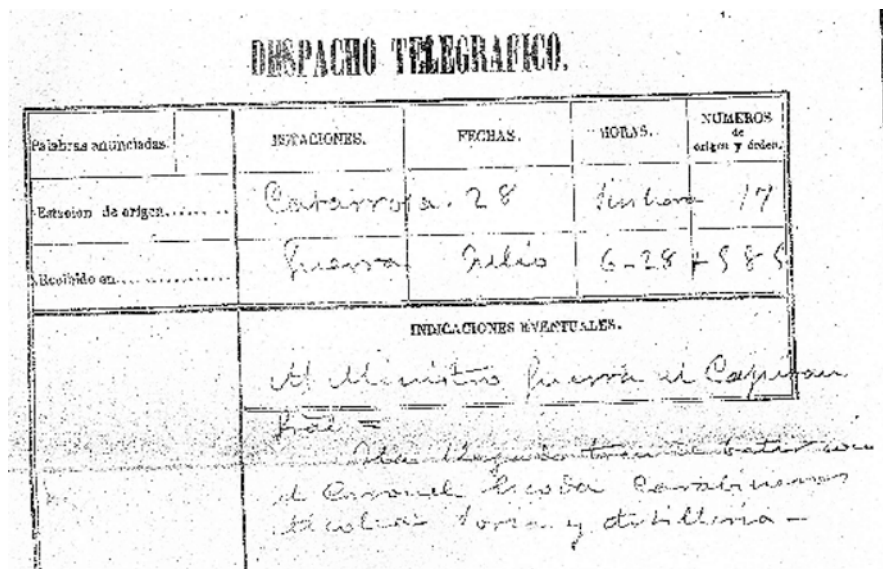 DESPACHO TELEGRAFICO.
Palabras anunciadas. ESTACIONES. FECHAS. HORAS. NUMEROS de origen y órden.
Estacion de origen........ Catarroja. 28 sin hora 17
Recibido en............... Guerra Julio 6-28 + 585
INDICACIONES EVENTUALES.
Al Ministro Guerra el Capitan
Gral =
Ha llegado tren de batir con
el Coronel Escoda Carabineros
y Artilleria -